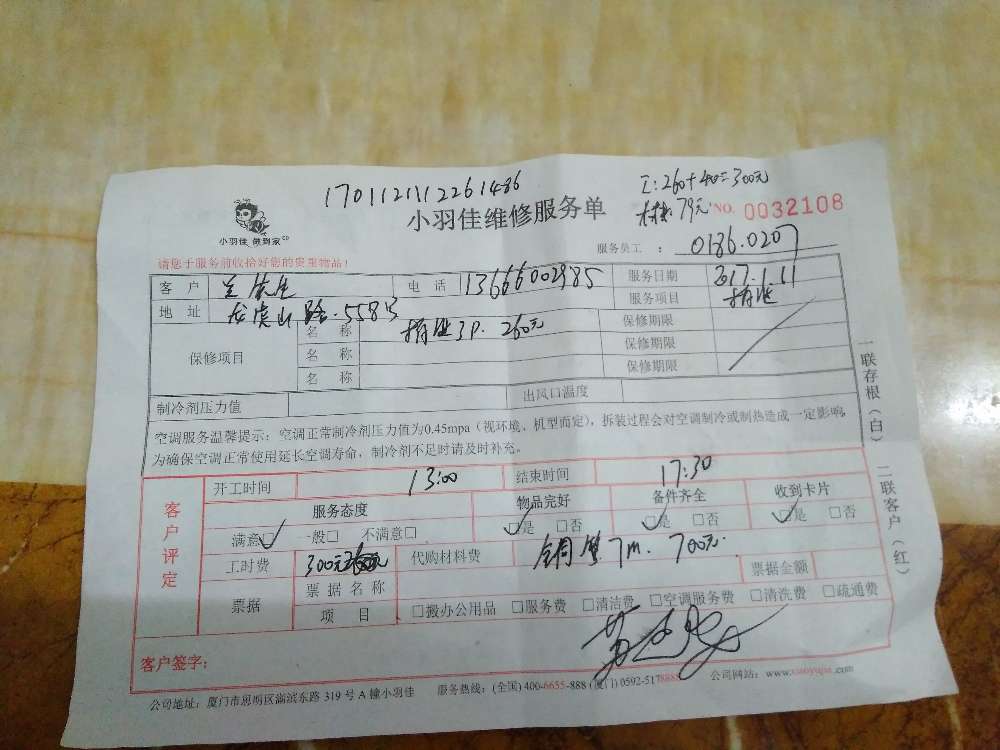 170112111226 1486
工:260+40=300元
79元 NO. 0032108
小羽佳 做到家
小羽佳维修服务单
服务员工 : 0186.0207
请您于服务前收拾好您的贵重物品!
客 户 电 话 13666002985 服务日期 2017.1.11
地 址 龙虎山路.558号 服务项目
保修项目 名 称 3P. 260元 保修期限
名 称 保修期限
名 称 保修期限
制冷剂压力值 出风口温度
空调服务温馨提示:空调正常制冷剂压力值为0.45mpa(视环境、机型而定),拆装过程会对空调制冷或制热造成一定影响,
为确保空调正常使用延长空调寿命,制冷剂不足时请及时补充。
一联存根(白) 二联客户(红)
客户评定
开工时间 13:00 结束时间 17:30
服务态度 物品完好 备件齐全 收到卡片
满意☑ 一般□ 不满意□ ☑是 □否 ☑是 □否 ☑是 □否
工时费 300元 代购材料费 铜管7m. 700元.
票据 票据名称 票据金额
项 目 □搬办公用品 □服务费 □清洁费 □空调服务费 □清洗费 □疏通费
客户签字:
公司地址:厦门市思明区湖滨东路 319 号 A 幢小羽佳 服务热线:(全国) 400-6655-888 (厦门) 0592-5178885 公司网站:www.xiaoyujia.com